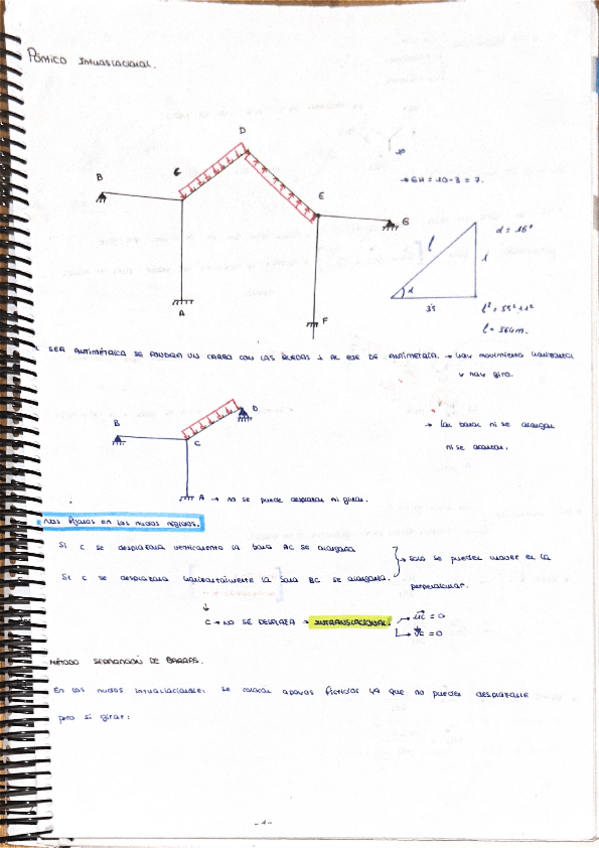 PÓRTICO INTRASLACIONAL.
D
B
C
→ GH = 10-3 = 7.
E
G
l
α = 16°
1
α
A
3'5
l² = 3'5² + 1²
F
l = 3'64 m.
SER ANTIMÉTRICA SE PONDRÁ UN CARRO CON LAS RUEDAS ⊥ AL EJE DE ANTIMETRÍA. → hay movimiento horizontal
y hay giro.
D
B
→ Las barras ni se alargan
C
ni se acortan.
A → no se puede desplazar ni girar.
nos fijamos en los nudos rígidos.
Si C se desplazara verticalmente la barra AC se alargaría
→ Solo se pueden mover en la
Si C se desplazara horizontalmente la barra BC se alargaría.
perpendicular.
C → NO SE DESPLAZA → INTRASLACIONAL.
→ uc = 0
→ vc = 0
MÉTODO SEPARACIÓN DE BARRAS.
En los nudos intraslacionales se colocan apoyos ficticios ya que no pueden desplazarse
pero si girar:
-1-